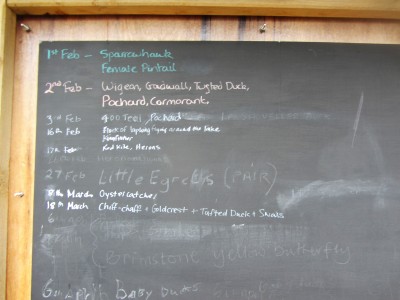 1st Feb - Sparrowhawk
Female Pintail
2nd Feb - Wigeon, Gadwall, Tufted Duck,
Pochard, Cormorant,
3rd Feb 400 Teal, Pochard
16th Feb Flock of lapwing flying around the lake
17th Feb Red Kite, Herons
27 Feb Little Egrets (PAIR)
8th March Oystercatcher
18th March Chiff-chaff + Goldcrest + Tufted Duck +
Brimstone yellow butterfly
baby